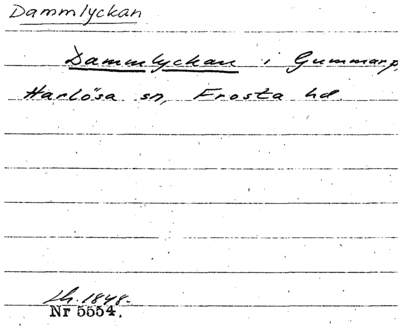 Dammlyckan
Dammlyckan i Gummarp,
Harlösa sn, Frosta hd.
Lh. 1848.
Nr 5554.